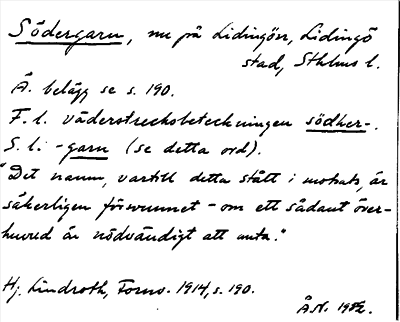 Södergarn, nu på Lidingön, Lidingö
stad, Sthlms l.
Ä. belägg se s. 190.
F. l. väderstrecksbeteckningen södher-.
S. l. -garn (se detta ord).
"Det namn, vartill detta stått i motsats, är
säkerligen försvunnet - om ett sådant över-
huvud är nödvändigt att anta."
Hj. Lindroth, Fornv. 1914, s. 190.
Å.N. 1982.